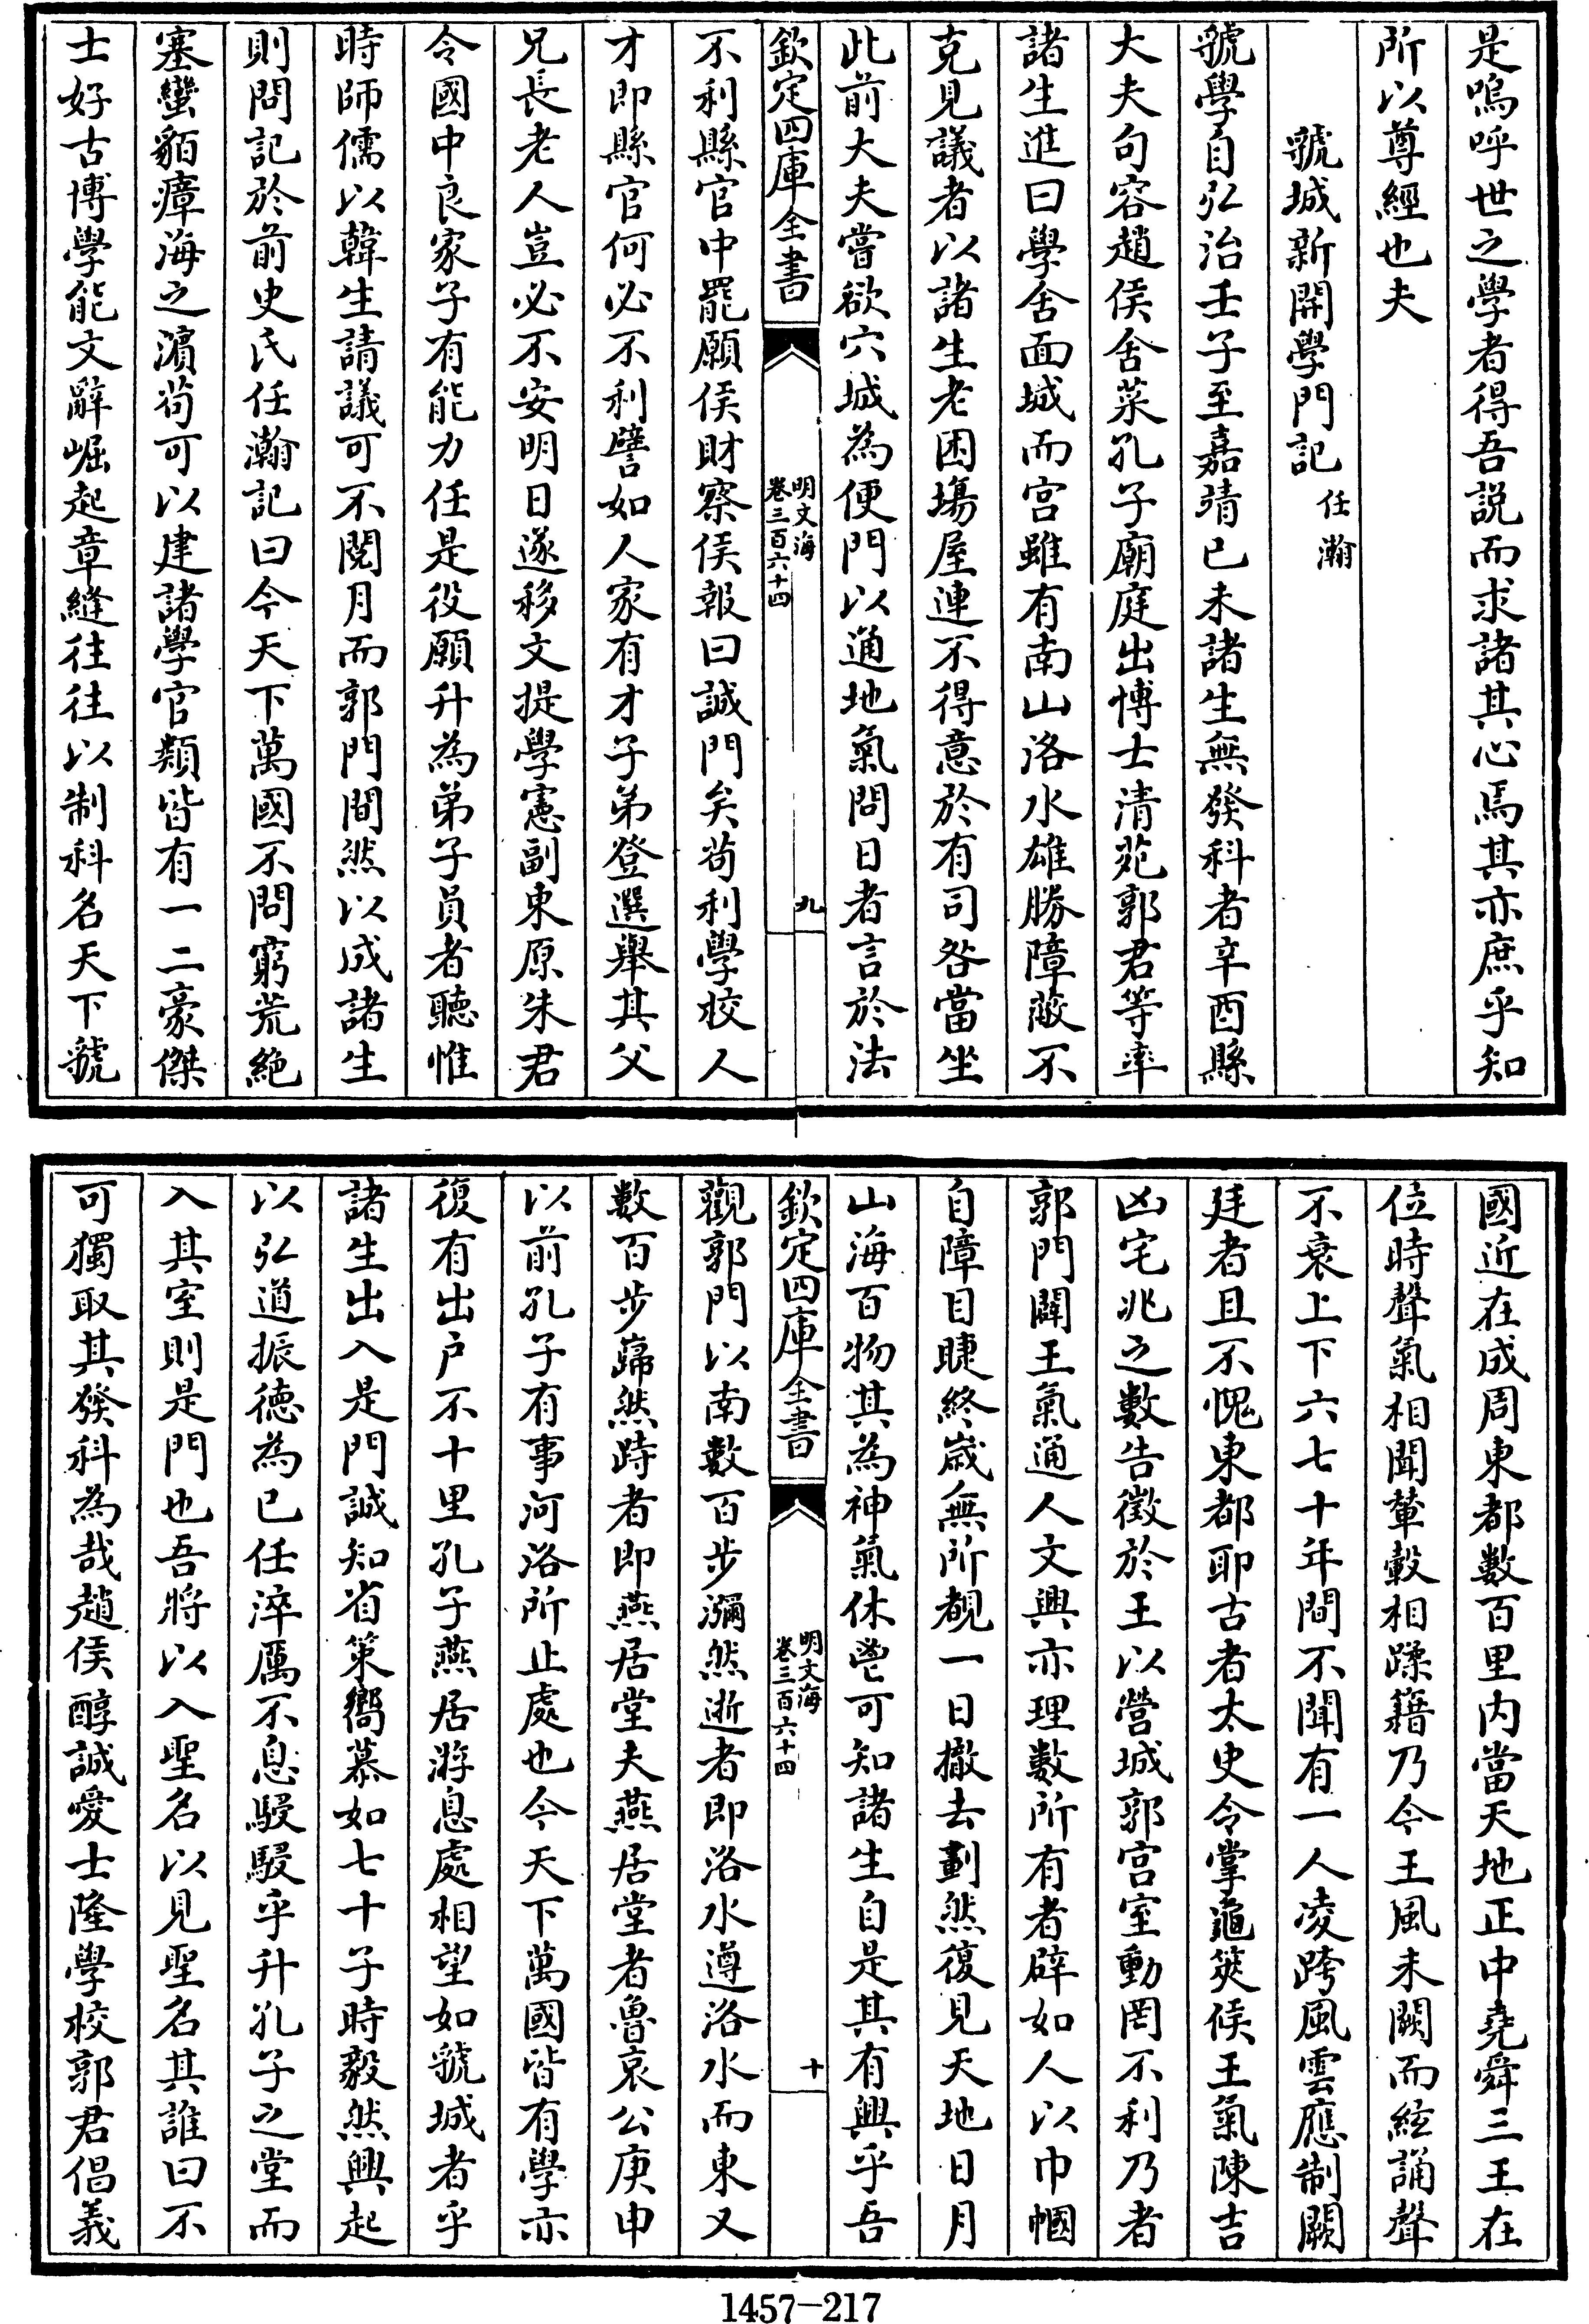 是嗚呼世之學者得吾說而求諸其心焉其亦庶乎知
所以尊經也夫
虢城新開學門記 任瀚
虢學自弘治壬子至嘉靖已未諸生無發科者辛酉縣
大夫句容趙侯舍菜孔子廟庭出博士清苑郭君等率
諸生進曰學舍面城而宮雖有南山洛水雄勝障蔽不
克見議者以諸生老困塲屋連不得意於有司咎當坐
此前大夫嘗欲穴城為便門以通地氣問日者言於法
欽定四庫全書
明文海
卷三百六十四
九
不利縣官中罷願侯財察侯報曰誠門矣茍利學校人
才即縣官何必不利譬如人家有才子弟登選舉其父
兄長老人豈必不安明日遂移文提學憲副東原朱君
令國中良家子有能力任是役願升為弟子員者聽惟
時師儒以韓生請議可不閱月而郭門閜然以成諸生
則問記於前史氏任瀚記曰今天下萬國不問窮荒絶
塞蠻貊瘴海之濵茍可以建諸學官類皆有一二豪傑
士好古博學能文辭崛起章縫往往以制科名天下虢
國近在成周東都數百里内當天地正中堯舜三王在
位時聲氣相聞輦轂相蹂籍乃今王風未闕而絃誦聲
不衰上下六七十年間不聞有一人凌跨風雲應制闕
廷者且不愧東都耶古者太史令掌龜筴候王氣陳吉
凶宅兆之數告徵於王以營城郭宮室動罔不利乃者
郭門闢王氣通人文興亦理數所有者辟如人以巾幗
自障目睫終嵗無所覩一日撤去劃然復見天地日月
山海百物其為神氣休鬯可知諸生自是其有興乎吾
欽定四庫全書
明文海
卷三百六十四
十
觀郭門以南數百步瀰然逝者即洛水遵洛水而東又
數百步巋然跱者即燕居堂夫燕居堂者魯哀公庚申
以前孔子有事河洛所止處也今天下萬國皆有學亦
復有出户不十里孔子燕居游息處相望如虢城者乎
諸生出入是門誠知省策嚮慕如七十子時毅然興起
以弘道振徳為已任淬厲不息駸駸乎升孔子之堂而
入其室則是門也吾將以入聖名以見聖名其誰曰不
可獨取其發科為哉趙侯醇誠愛士隆學校郭君倡義
1457—217